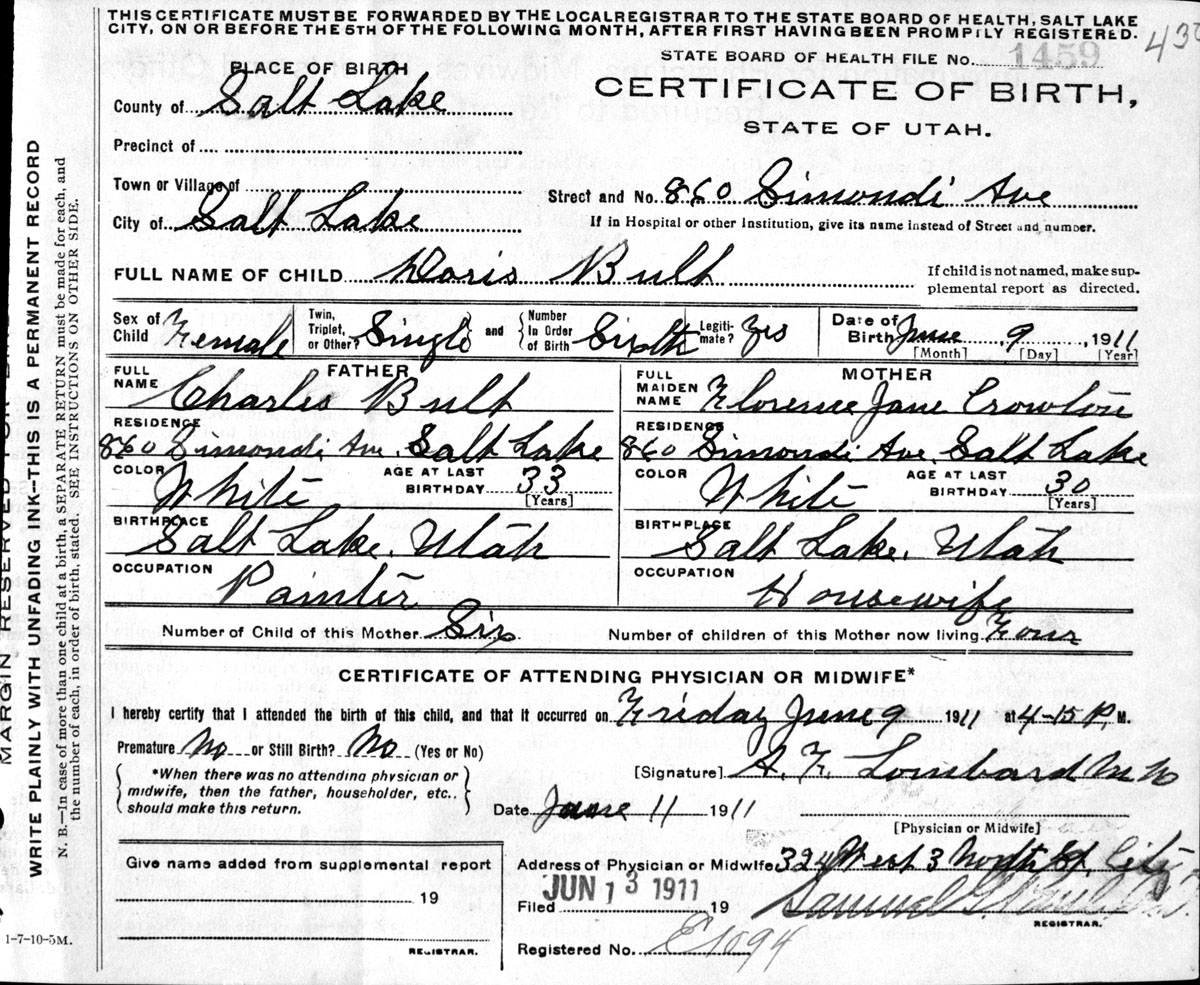 THIS CERTIFICATE MUST BE FORWARDED BY THE LOCALREGISTRAR TO THE STATE BOARD OF HEALTH, SALT LAKE
CITY, ON OR BEFORE THE 5TH OF THE FOLLOWING MONTH, AFTER FIRST HAVING BEEN PROMPILY REGISTERED.
STATE BOARD OF HEALTH FILE No. 1459
PLACE OF BIRTH
CERTIFICATE OF BIRTH,
STATE OF UTAH.
County of Salt Lake
Precinct of
Town or Village of
Street and No. 860 Simondi Ave
City of Salt Lake
If in Hospital or other Institution, give its name instead of Street and number.
FULL NAME OF CHILD Doris Bult
If child is not named, make sup-
plemental report as directed.
Sex of Child Female
Twin, Triplet, or Other? Single and Number In Order of Birth Sixth
Legiti- mate? Yes
Date of Birth June 9, 1911
[Month] [Day] [Year]
FATHER
FULL NAME Charles Bult
RESIDENCE
860 Simondi Ave. Salt Lake
COLOR White AGE AT LAST BIRTHDAY 33
[Years]
BIRTHPLACE
Salt Lake, Utah
OCCUPATION Painter
MOTHER
FULL MAIDEN NAME Florence Jane Crowton
RESIDENCE
860 Simondi Ave. Salt Lake
COLOR White AGE AT LAST BIRTHDAY 30
[Years]
BIRTHPLACE
Salt Lake, Utah
OCCUPATION Housewife
Number of Child of this Mother Six. Number of children of this Mother now living Four
CERTIFICATE OF ATTENDING PHYSICIAN OR MIDWIFE*
I hereby certify that I attended the birth of this child, and that it occurred on Friday June 9 1911 at 4-15 P. M.
Premature No or Still Birth? No (Yes or No)
*When there was no attending physician or
midwife, then the father, householder, etc..
should make this return.
[Signature] A. F. Lombard M D
Date June 11 1911
[Physician or Midwife]
Give name added from supplemental report
19
REGISTRAR.
Address of Physician or Midwife 324 West 3 North St. City
Filed JUN 13 1911 19
Samuel G.
REGISTRAR.
Registered No. E1094
1-7-10-5M.
MARGIN RESERVED FOR
WRITE PLAINLY WITH UNFADING INK--THIS IS A PERMANENT RECORD
N. B.—In case of more than one child at a birth, a SEPARATE RETURN must be made for each, and
the number of each, in order of birth, stated. SEE INSTRUCTIONS ON OTHER SIDE.